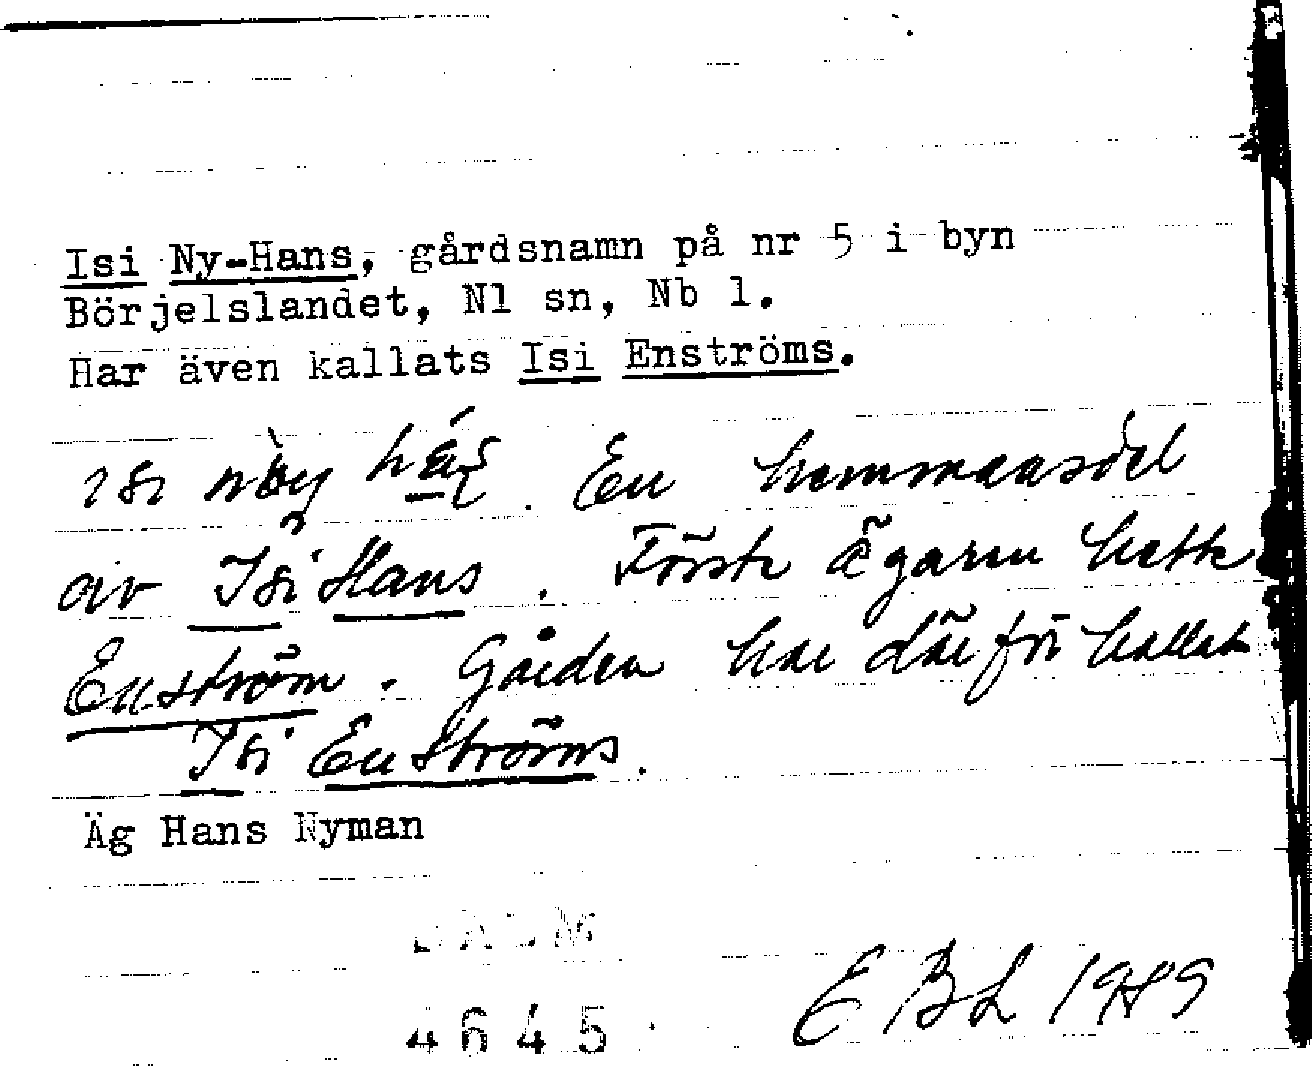 Isi Ny-Hans, gårdsnamn på nr 5 i byn
Börjelslandet, Nl sn, Nb l.
Har även kallats Isi Enströms.
En hemmansdel
av Isi Hans. Förste ägaren hette
Enström. Gården har därför kallats
Isi Enströms.
Äg Hans Nyman
DAUM
4645
E BL 1989